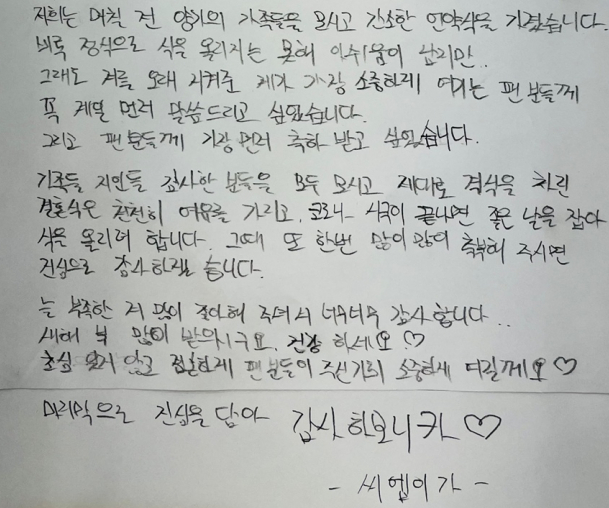 저희는 며칠 전 양가의 가족들을 모시고 간소한 언약식을 가졌습니다.
비록 정식으로 식을 올리지는 못해 아쉬움이 남지만..
그래도 저를 오래 지켜준 제가 가장 소중하게 여기는 팬분들께
꼭 제일 먼저 말씀드리고 싶었습니다.
그리고 팬분들께 가장 먼저 축하 받고 싶었습니다.
가족들 지인들 감사한 분들을 모두 모시고 제대로 격식을 차린
결혼식은 천천히 여유를 가리고, 코로나 시국이 끝나면 좋은 날을 잡아
식을 올리려 합니다. 그때 또 한번 많이 많이 축복해 주시면
진심으로 감사하겠습니다.
늘 부족한 저 많이 좋아해 주셔서 너무너무 감사합니다..
새해 복 많이 받으시구요, 건강 하세요♡
초심 잃지 않고 팬분들이 주신거리 소중하게 여길께요♡
마지막으로 진심을 담아 감사하모니카♡
- 씨엘이가 -